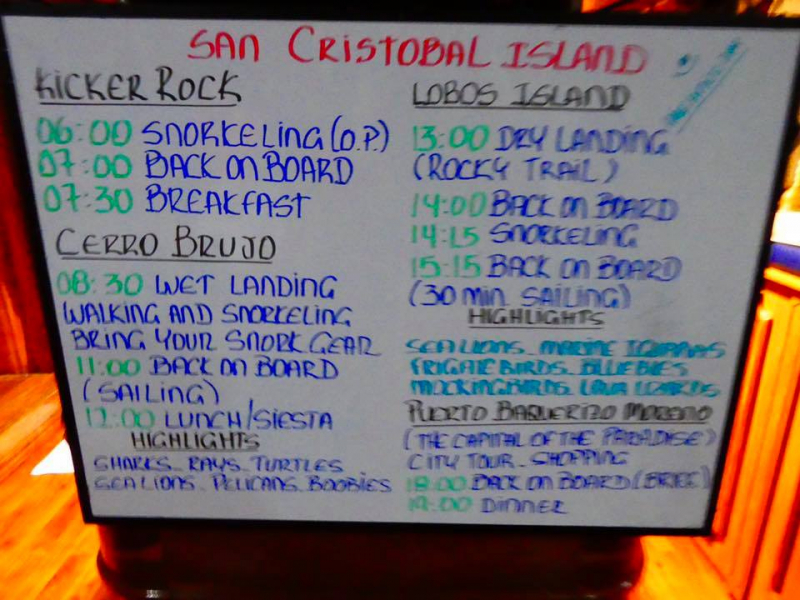 SAN CRISTOBAL ISLAND
KICKER ROCK
06:00 SNORKELING (O.P.)
07:00 BACK ON BOARD
07:30 BREAKFAST
CERRO BRUJO
08:30 WET LANDING
WALKING AND SNORKELING
BRING YOUR SNORK GEAR
11:00 BACK ON BOARD
(SAILING)
12:00 LUNCH/SIESTA
HIGHLIGHTS
SHARKS_RAYS_TURTLES
SEALIONS_PELICANS_BOOBIES
LOBOS ISLAND
13:00 DRY LANDING
(ROCKY TRAIL)
14:00 BACK ON BOARD
14:15 SNORKELING
15:15 BACK ON BOARD
(30 MIN. SAILING)
HIGHLIGHTS
SEALIONS_MARINE IGUANAS
FRIGATEBIRDS_BLUEBIES
MOCKINGBIRDS_LAVA LIZARDS
PUERTO BAQUERIZO MORENO
(THE CAPITAL OF THE PARADISE)
CITY TOUR_SHOPPING
18:00 BACK ON BOARD (BRIEF)
19:00 DINNER